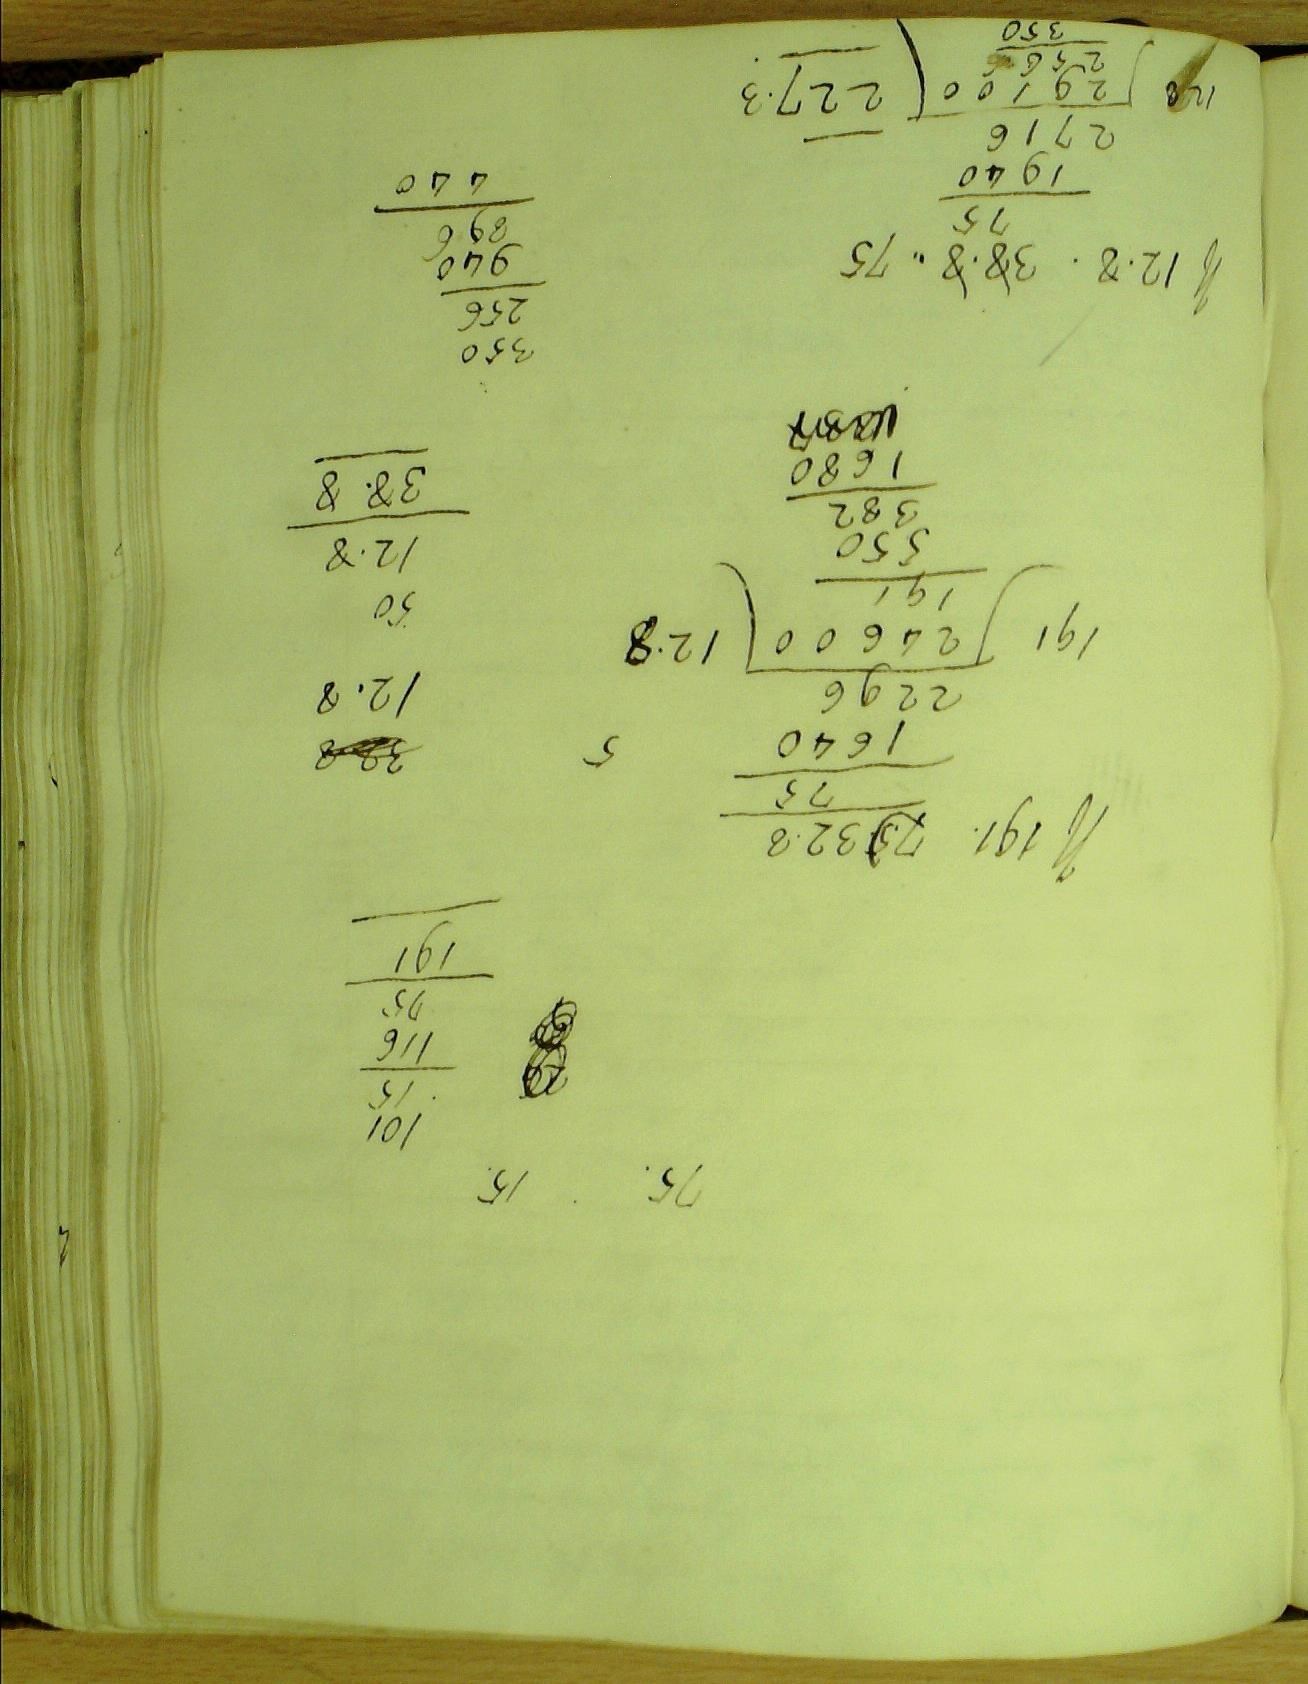 75. 15.
101
15
116
75
191
If 191. 75. 32.8
75
1640
2296
191 ) 24600 ( 12.8
191
550
382
1680
5
12.8
50
12.8
38.8
If 12.8 . 38.8 .. 75
75
1940
2716
12.8 ) 29100 ( 227.3
256
350
350
256
940
896
440